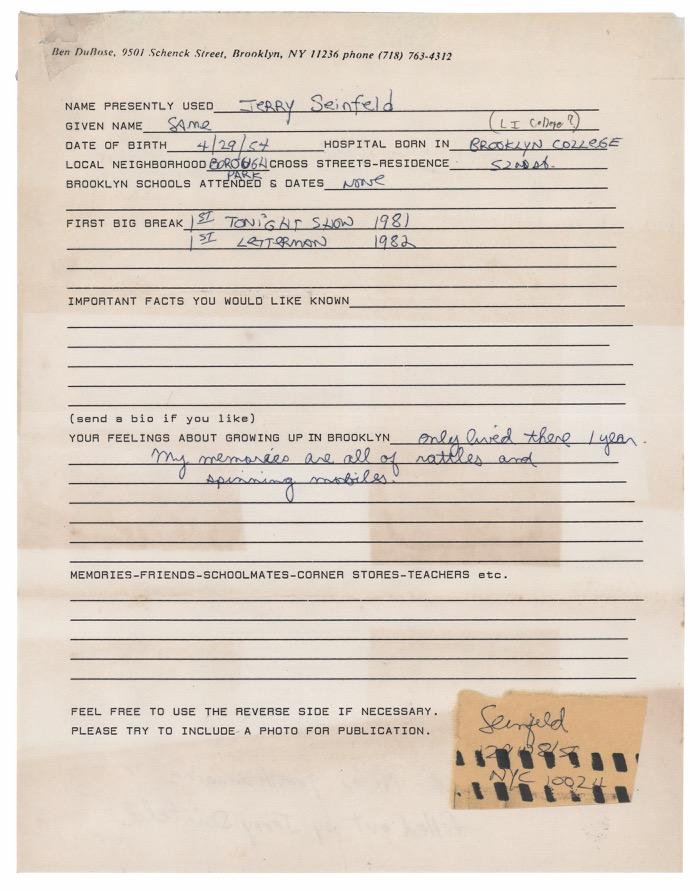 Ben DuBose, 9501 Schenck Street, Brooklyn, NY 11236 phone (718) 763-4312
NAME PRESENTLY USED JERRY Seinfeld
GIVEN NAME SAME (LI College?)
DATE OF BIRTH 4/29/54 HOSPITAL BORN IN BROOKLYN COLLEGE
LOCAL NEIGHBORHOOD BOROUGH PARK CROSS STREETS-RESIDENCE 52nd st.
BROOKLYN SCHOOLS ATTENDED & DATES NONE
FIRST BIG BREAK 1ST TONIGHT SHOW 1981
1ST LETTERMAN 1982
IMPORTANT FACTS YOU WOULD LIKE KNOWN
(send a bio if you like)
YOUR FEELINGS ABOUT GROWING UP IN BROOKLYN only lived there 1 year.
My memories are all of rattles and
spinning mobiles.
MEMORIES-FRIENDS-SCHOOLMATES-CORNER STORES-TEACHERS etc.
FEEL FREE TO USE THE REVERSE SIDE IF NECESSARY.
PLEASE TRY TO INCLUDE A PHOTO FOR PUBLICATION.
Seinfeld
NYC 10024